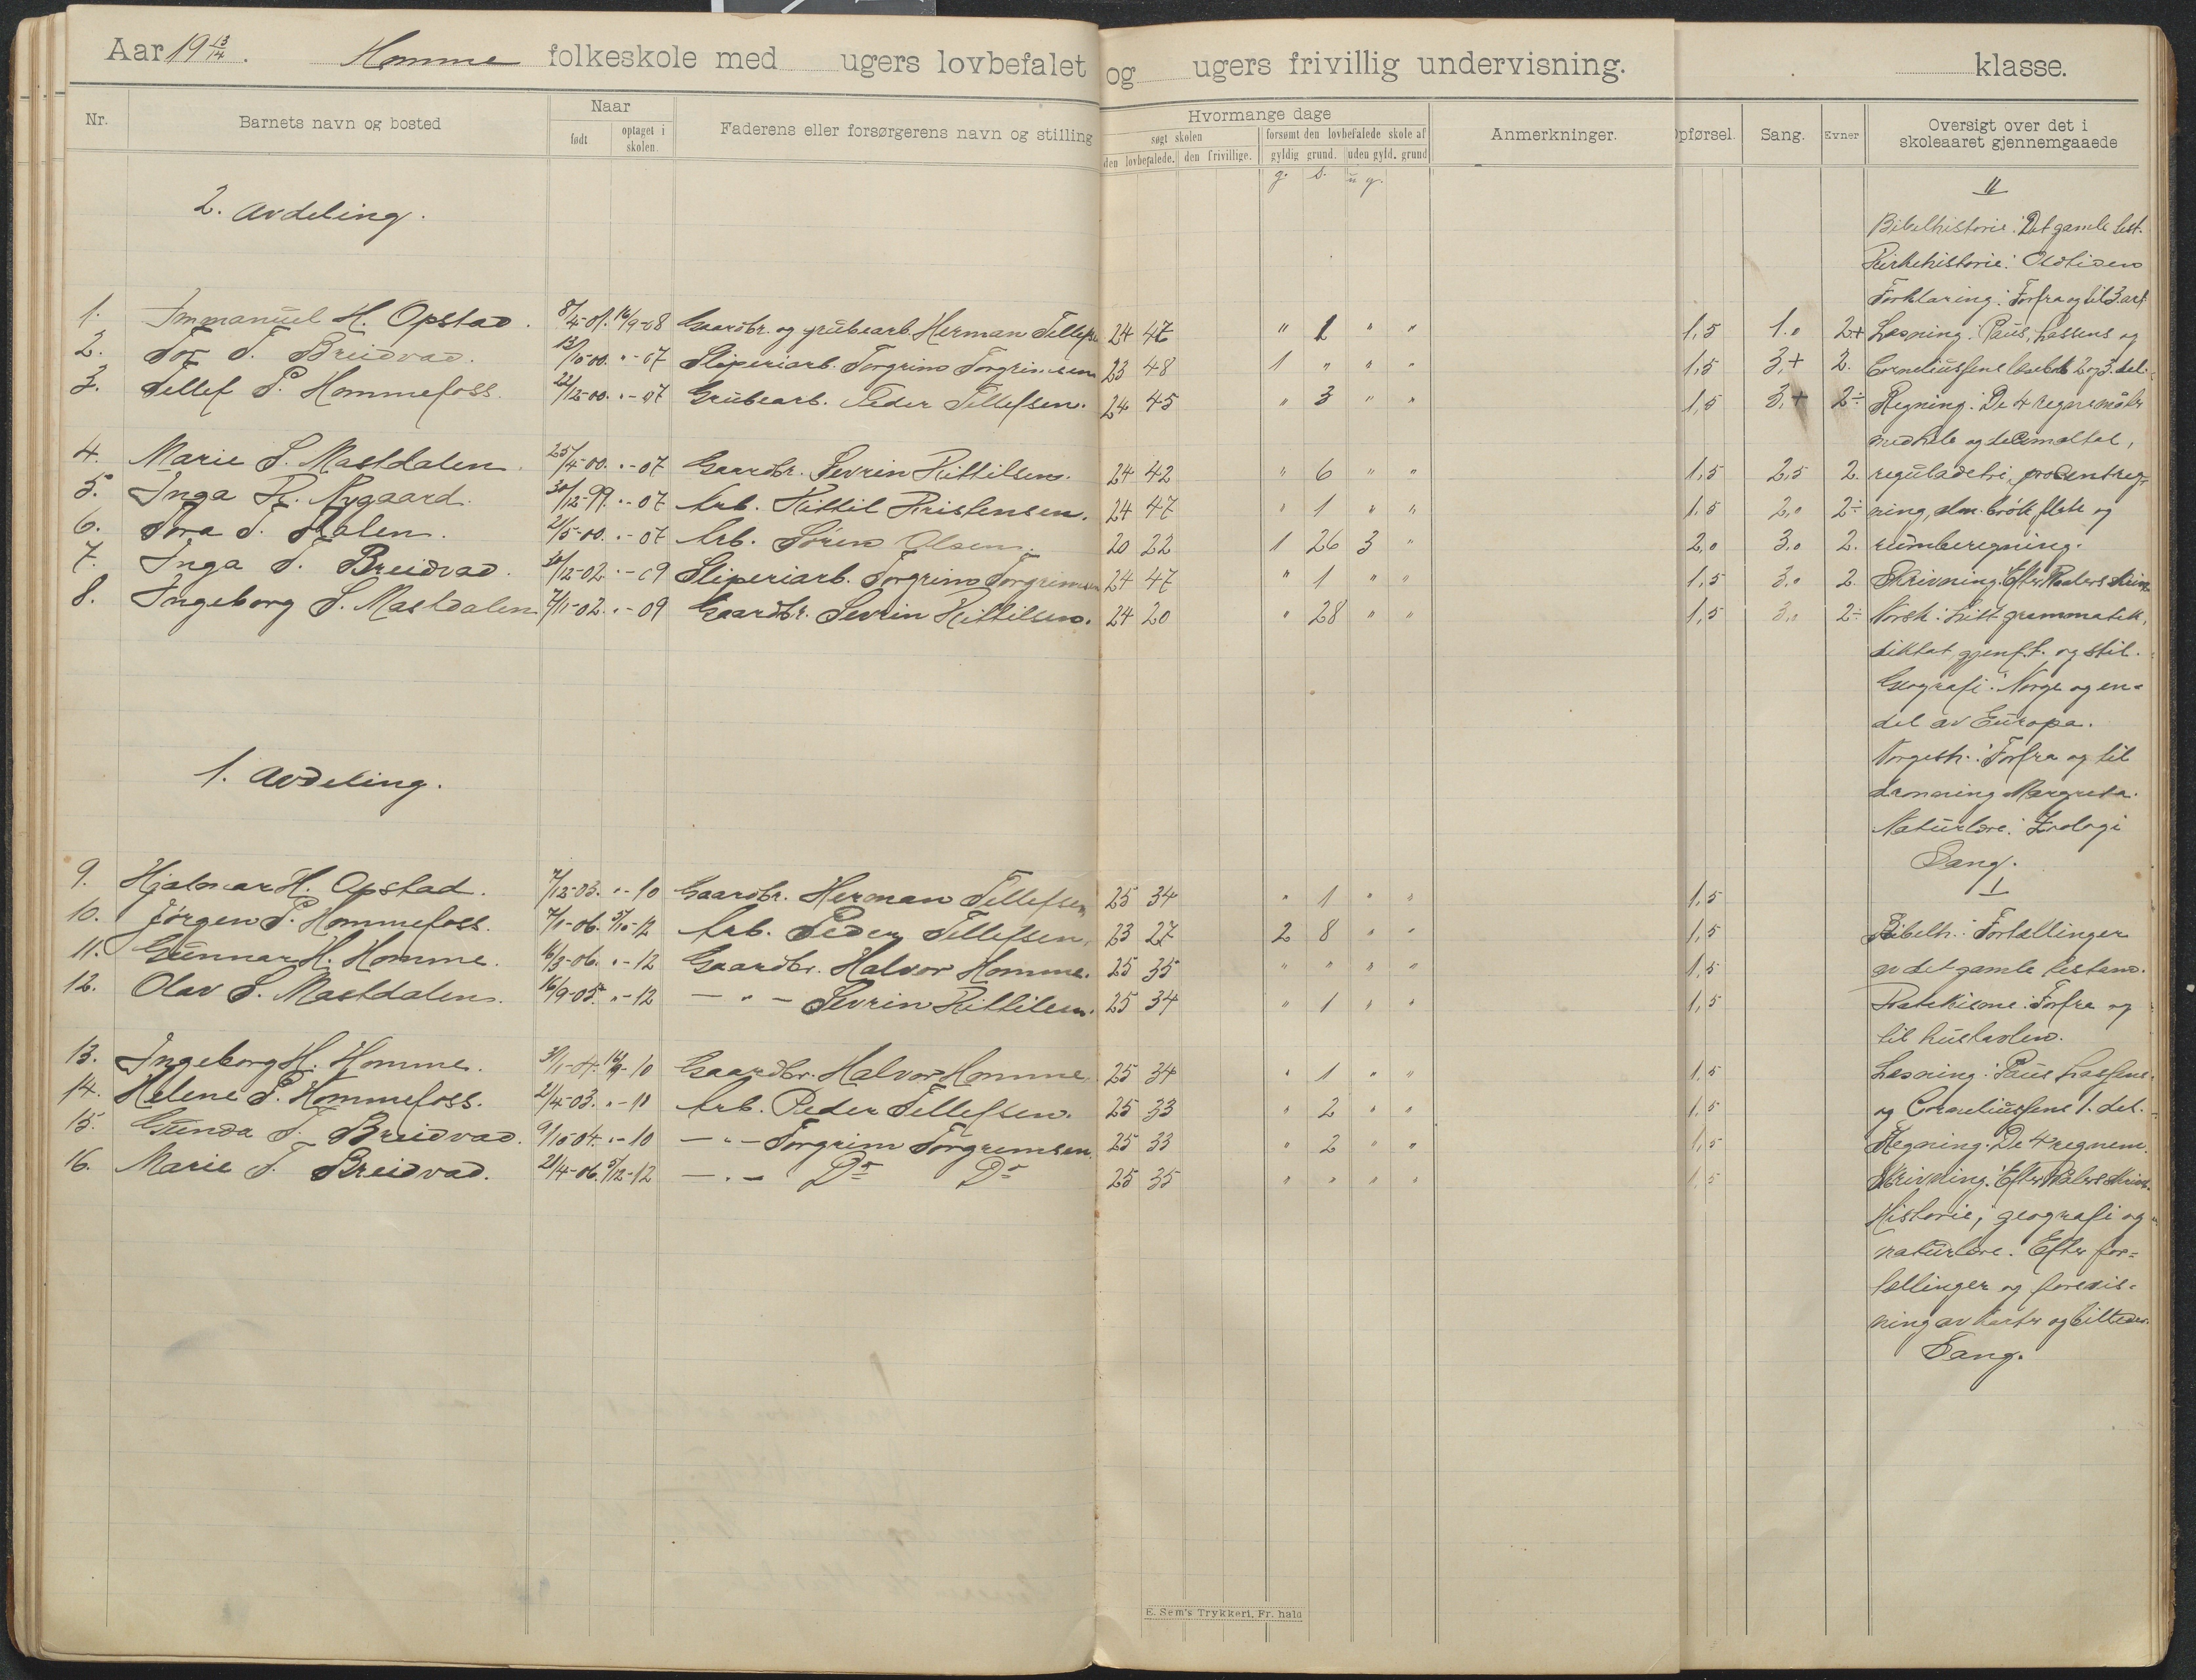 Aar 19 13/14. Homme folkeskole med ugers lovbefalet og ugers frivillig undervisning. klasse.
Nr. Barnets navn og bosted Naar født optaget i skolen. Faderens eller forsørgerens navn og stilling Hvormange dage søgt skolen den lovbefalede. den frivillige. forsømt den lovbefalede skole af gyldig grund. uden gyld. grund Anmerkninger. Opførsel. Sang. Evner Oversigt over det i skoleaaret gjennemgaaede
g. s. u g.
2. Avdeling.
1. Immanuel H. Opstad. 8/4-01. 16/9-08 Gaardbr. og grubearb. Herman Tellefsen 24 47 " 1 " " 1,5 1.0 2+
2. Tor T. Breidvad. 13/10-00. "-07 Sliperiarb. Torgrim Torgrimsen 23 48 1 " " " 1,5 3,+ 2.
3. Tellef P. Hommefoss. 22/12-00. "-07 Grubearb. Peder Tellefsen. 24 45 " 3 " " 1,5 3,+ 2÷
4. Marie S. Mastdalen. 25/4-00. "-07 Gaardbr. Sevrin Kittilsen. 24 42 " 6 " " 1,5 2,5 2.
5. Inga K. Nygaard. 30/12-99. "-07 Arb. Kittil Kristensen. 24 47 " 1 " " 1,5 2,0 2÷
6. Tora S. Dalen. 2/5-00. "-07 Arb. Søren Olsen. 20 22 1 26 3 " 2,0 3.0 2.
7. Inga T. Breidvad. 30/12-02. "-09 Sliperiarb. Torgrim Torgrimsen 24 47 " 1 " " 1,5 3.0 2
8. Ingeborg S. Mastdalen 7/11-02. "-09 Gaardbr. Sevrin Kittilsen. 24 20 " 28 " " 1,5 3,0 2÷
1. Avdeling.
9. Hjalmar H. Opstad. 7/12-03. "-10 Gaardbr. Herman Tellefsen 25 34 " 1 " " 1,5
10. Jørgen P. Hommefoss. 7/1-06. 5/10-12 Arb. Peder Tellefsen. 23 27 2 8 " " 1,5
11. Gunnar H. Homme. 16/3-06. "-12 Gaardbr. Halvor Homme. 25 35 " " " " 1,5
12. Olav S. Mastdalen. 16/9-05. "-12 - " - Sevrin Kittilsen. 25 34 " 1 " " 1,5
13. Ingeborg H. Homme. 31/1-04. 16/9-10 Gaardbr. Halvor Homme 25 34 " 1 " " 1,5
14. Helene P. Hommefoss. 2/4-03. "-10 Arb. Peder Tellefsen. 25 33 " 2 " " 1,5
15. Gunda T. Breidvad. 9/10-04. "-10 - " - Torgrim Torgremsen. 25 33 " 2 " " 1,5
16. Marie T. Breidvad. 21/4-06. 5/12-12 - " - Do Do 25 35 " " " " 1,5
II
Bibelhistorie: Det gamle test.
Kirkehistorie: Oldtiden
Forklaring: Forfra og til 3. art
Læsning: Paus, Lassens og
Corneliussens læsebok 2 og 3. del.
Regning: De 4 regnemåter
med hele og desimaltal,
reguladetri, procentreg-
ning, alm. brøk, flate og
rumberegning.
Skrivning: Efter Paalers skriv.
Norsk: Litt grammatik,
diktat, gjenft. og stil.
Geografi: Norge og en-
del av Europa.
Norgesh.: Forfra og til
dronning Margreta.
Naturlære: Zoologi
Sang.
I
Bibelh.: Fortællinger
av det gamle testam.
Katekisme: Forfra og
til hustavlen.
Læsning: Paus Lassens
og Corneliussens 1. del.
Regning: De 4 regnem.
Skrivning: Efter Paalers skriv.
Historie, geografi og
naturlære: Efter for-
tællinger og forevis-
ning av karter og billeder.
Sang.
E. Sem's Trykkeri, Fr. hald